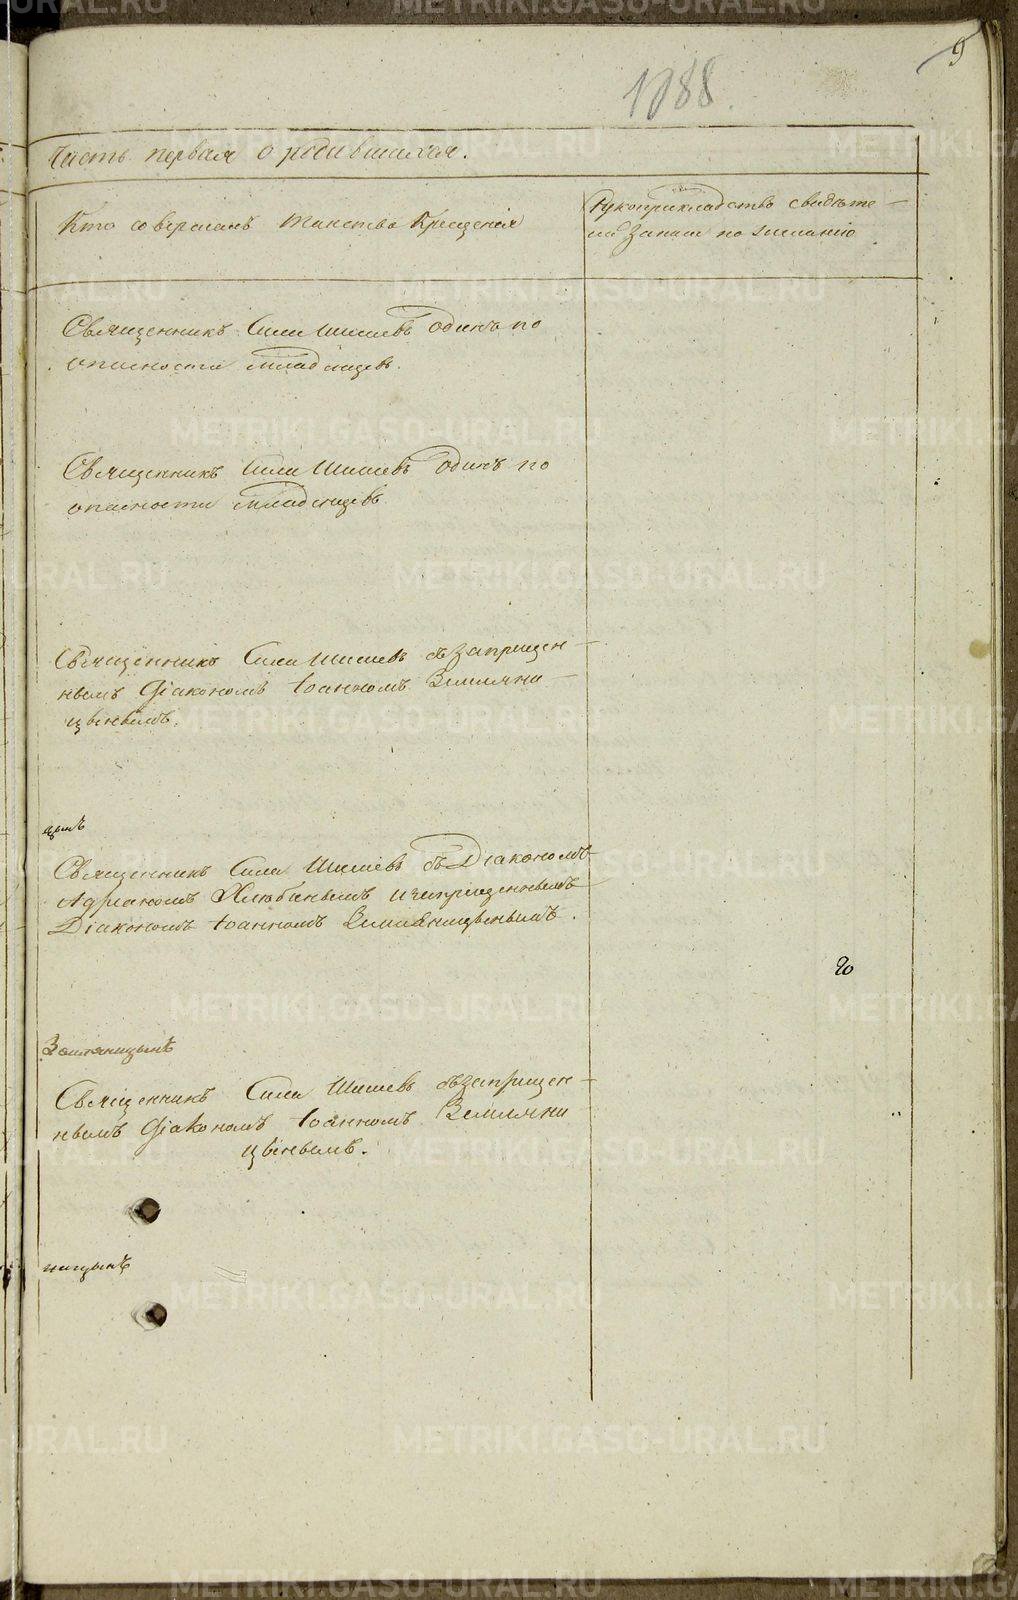 9
1088.
Часть первая о родившихся.
Кто совершалъ таинство Крещенія
Рукоприкладство свидѣте-
лей записи по желанію
Священникъ Сила Шишевъ одинъ по
опасности младенцевъ.
Священникъ Сила Шишевъ одинъ по
опасности младенцевъ
Священникъ Сила Шишевъ съ запрещен-
нымъ Діакономъ Іоанномъ Земляни-
цынымъ.
цынъ
Священникъ Сила Шишевъ съ Діакономъ
Адріаномъ Хлюбинымъ и запрещеннымъ
Діакономъ Іоанномъ Земляницынымъ.
20
Земляницынъ
Священникъ Сила Шишевъ съ запрещен-
нымъ Діакономъ Іоанномъ Земляни-
цынымъ.
ницынъ
METRIKI.GASO-URAL.RU